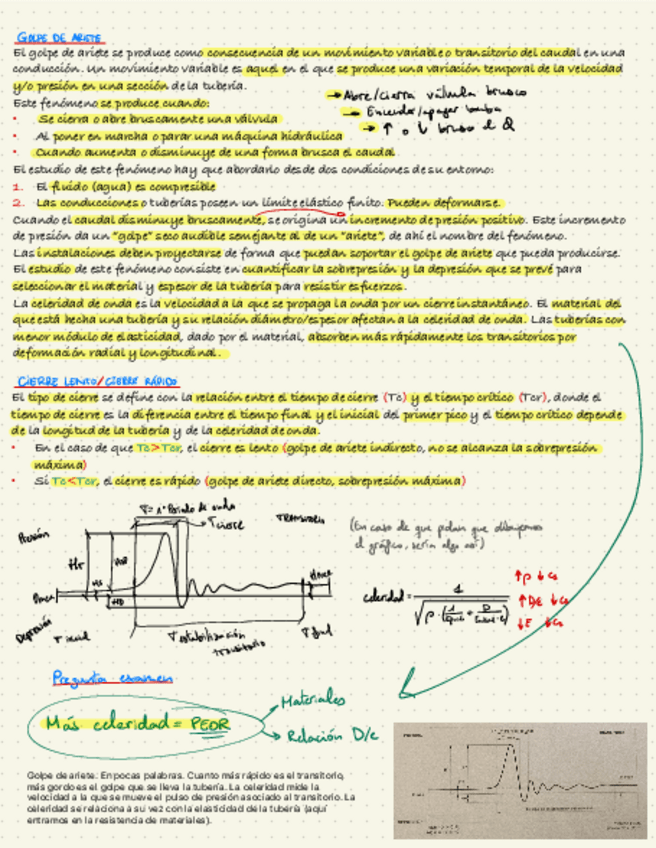 GOLPE DE ARIETE
El golpe de ariete se produce como consecuencia de un movimiento variable o transitorio del caudal en una
conducción. Un movimiento variable es aquel en el que se produce una variación temporal de la velocidad
y/o presión en una sección de la tubería.
→ Abre/cierra válvula brusco
Este fenómeno se produce cuando:
→ Encender/apagar bomba
• Se cierra o abre bruscamente una válvula
→ ↑ o ↓ brusco d Q
• Al poner en marcha o parar una máquina hidráulica
• Cuando aumenta o disminuye de una forma brusca el caudal
El estudio de este fenómeno hay que abordarlo desde dos condiciones de su entorno:
1. El fluido (agua) es compresible
2. Las conducciones o tuberías poseen un límite elástico finito. Pueden deformarse.
Cuando el caudal disminuye bruscamente, se origina un incremento de presión positivo. Este incremento
de presión da un "golpe" seco audible semejante al de un "ariete", de ahí el nombre del fenómeno.
Las instalaciones deben proyectarse de forma que puedan soportar el golpe de ariete que pueda producirse.
El estudio de este fenómeno consiste en cuantificar la sobrepresión y la depresión que se prevé para
seleccionar el material y espesor de la tubería para resistir esfuerzos.
La celeridad de onda es la velocidad a la que se propaga la onda por un cierre instantáneo. El material del
que está hecha una tubería y su relación diámetro/espesor afectan a la celeridad de onda. Las tuberías con
menor módulo de elasticidad, dado por el material, absorben más rápidamente los transitorios por
deformación radial y longitudinal.
CIERRE LENTO/CIERRE RÁPIDO
El tipo de cierre se define con la relación entre el tiempo de cierre (Tc) y el tiempo crítico (Tcr), donde el
tiempo de cierre es la diferencia entre el tiempo final y el inicial del primer pico y el tiempo crítico depende
de la longitud de la tubería y de la celeridad de onda.
• En el caso de que Tc>Tcr, el cierre es lento (golpe de ariete indirecto, no se alcanza la sobrepresión
máxima)
• Si Tc<Tcr, el cierre es rápido (golpe de ariete directo, sobrepresión máxima)
T = 1º Periodo de onda
T cierre
TRANSITORIO
Presión
(En caso de que pidan que dibujemos
el gráfico, sería algo así)
HT
Depresión
T inicial
T estabilización
transitorio
T final
celeridad =
1
↑ρ ↓
↑D/e ↓
↓E ↓
Pregunta examen
Más celeridad = PEOR
→ Materiales
→ Relación D/e
Golpe de ariete: En pocas palabras. Cuanto más rápido es el transitorio,
más gordo es el golpe que se lleva la tubería. La celeridad mide la
velocidad a la que se mueve el pulso de presión asociado al transitorio. La
celeridad se relaciona a su vez con la elasticidad de la tubería (aquí
entramos en la resistencia de materiales).